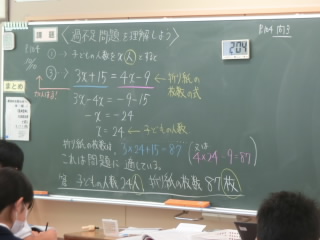 課題
〈過不足問題を理解しよう〉
P104
問3
2:04
①→ 子どもの人数をx人とすると
③→ 3x+15=4x-9 ←折り紙の枚数の式
3x-4x=-9-15
-x=-24
x=24 ←子どもの人数
まとめ
折り紙の枚数は、3×24+15=87 (または 4×24-9=87)
これは問題に適している。
答 子どもの人数24人, 折り紙の枚数87枚